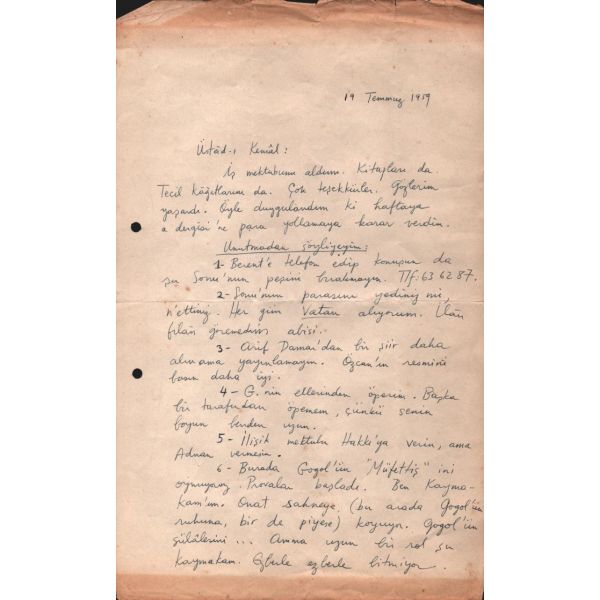 19 Temmuz 1959
Üstâd-ı Kemâl:
İş mektubunu aldım. Kitapları da.
Tecil kâğıtlarını da. Çok teşekkürler. Gözlerim
yaşardı. Öyle duygulandım ki haftaya
a dergisi'ne para yollamaya karar verdim.
Unutmadan söyliyeyim:
1- Berent'e telefon edip konuşun da
şu Sonu'nun peşini bırakmayın. Tlf: 63 62 87.
2- Sonu'nun parasını yediniz mi,
n'ettiniz. Her gün Vatan alıyorum. İlân
filân göremedim abisi.
3- Arif Damar'dan bir şiir daha
alın ama yayınlamayın. Özcan'ın resmini
basın daha iyi.
4- G.nin ellerinden öperim. Başka
bir tarafından öpemem, çünkü senin
boyun benden uzun.
5- İlişik mektubu Hakkı'ya verin, ama
Adnan vermesin.
6- Burada Gogol'ün "Müfettiş" ini
oynuyoruz. Provalar başladı. Ben Kayma-
kam'ım. Onat sahneye (bu arada Gogol'ün
ruhuna, bir de piyese) koyuyor. Gogol'ün
sülâlesini... Amma uzun bir rol şu
kaymakam. Ezberle ezberle bitmiyor.